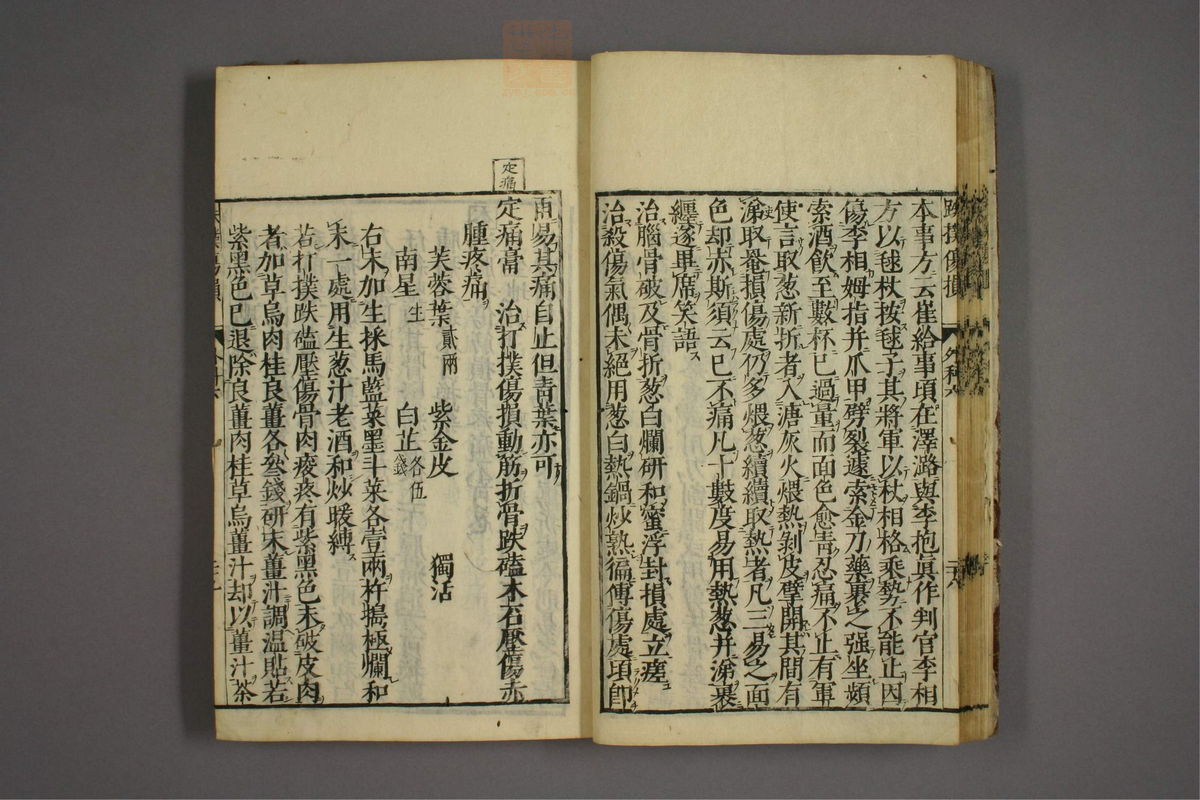 跌撲傷損
外科六
本事方云崔給事頃在澤潞與李抱眞作判官李相
方以毬杖按毬子其將軍以杖相格乘勢不能止因
傷李相姆指并爪甲劈裂遽索金刀藥裹之强坐頻
索酒飮至數杯已過量而面色愈靑忍痛不止有軍
使言取葱新折者入溏灰火煨熱剝皮擘開其間有
涕取罨損傷處仍多煨葱續續取熱者凡三易之面
色却赤斯須云已不痛凡十數度易用熱葱并涕裹
纏遂畢席笑語
治腦骨破及骨折葱白爛研和蜜浮封損處立瘥
治殺傷氣偶未絕用葱白熱鍋炒熟徧傅傷處頃卽
再易其痛自止但靑葉亦可
定痛
定痛膏 治打撲傷損動筋折骨跌磕木石壓傷赤
腫疼痛
芙蓉葉貳兩 紫金皮 獨活
南星生 白芷各伍錢
右末加生採馬藍菜墨斗菜各壹兩杵搗極爛和
末一處用生葱汁老酒和炒暖縛
若打撲跌磕壓傷骨肉痠疼有紫黑色未破皮肉
者加草烏肉桂良薑各叁錢研末薑汁調温貼若
紫黑色已退除良薑肉桂草烏薑汁却以薑汁茶